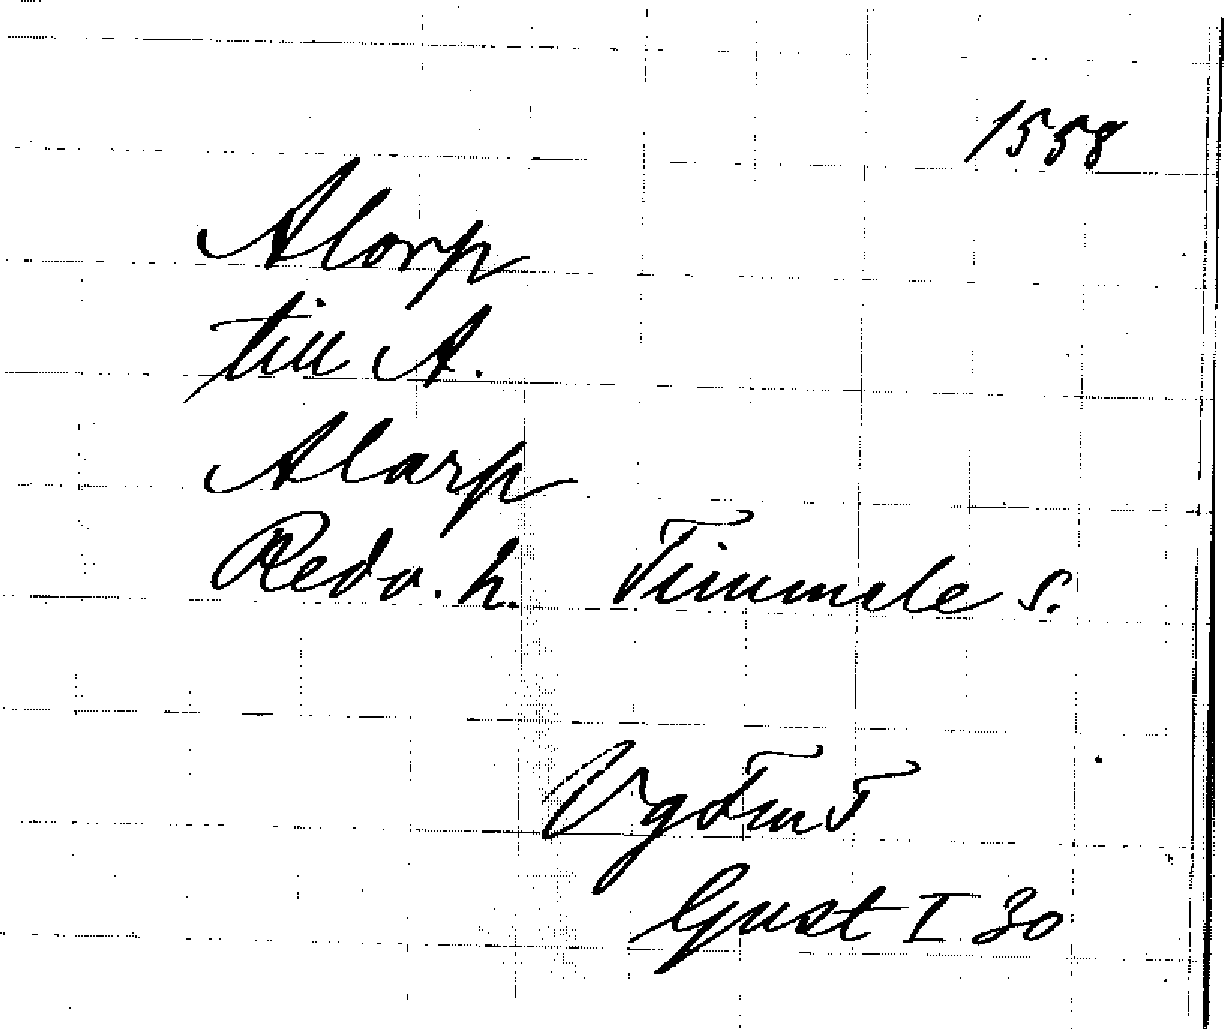 1558
Alorp
till A.
Alarp
Redv. h. Timmele s.
VgTmT
Gust I 30